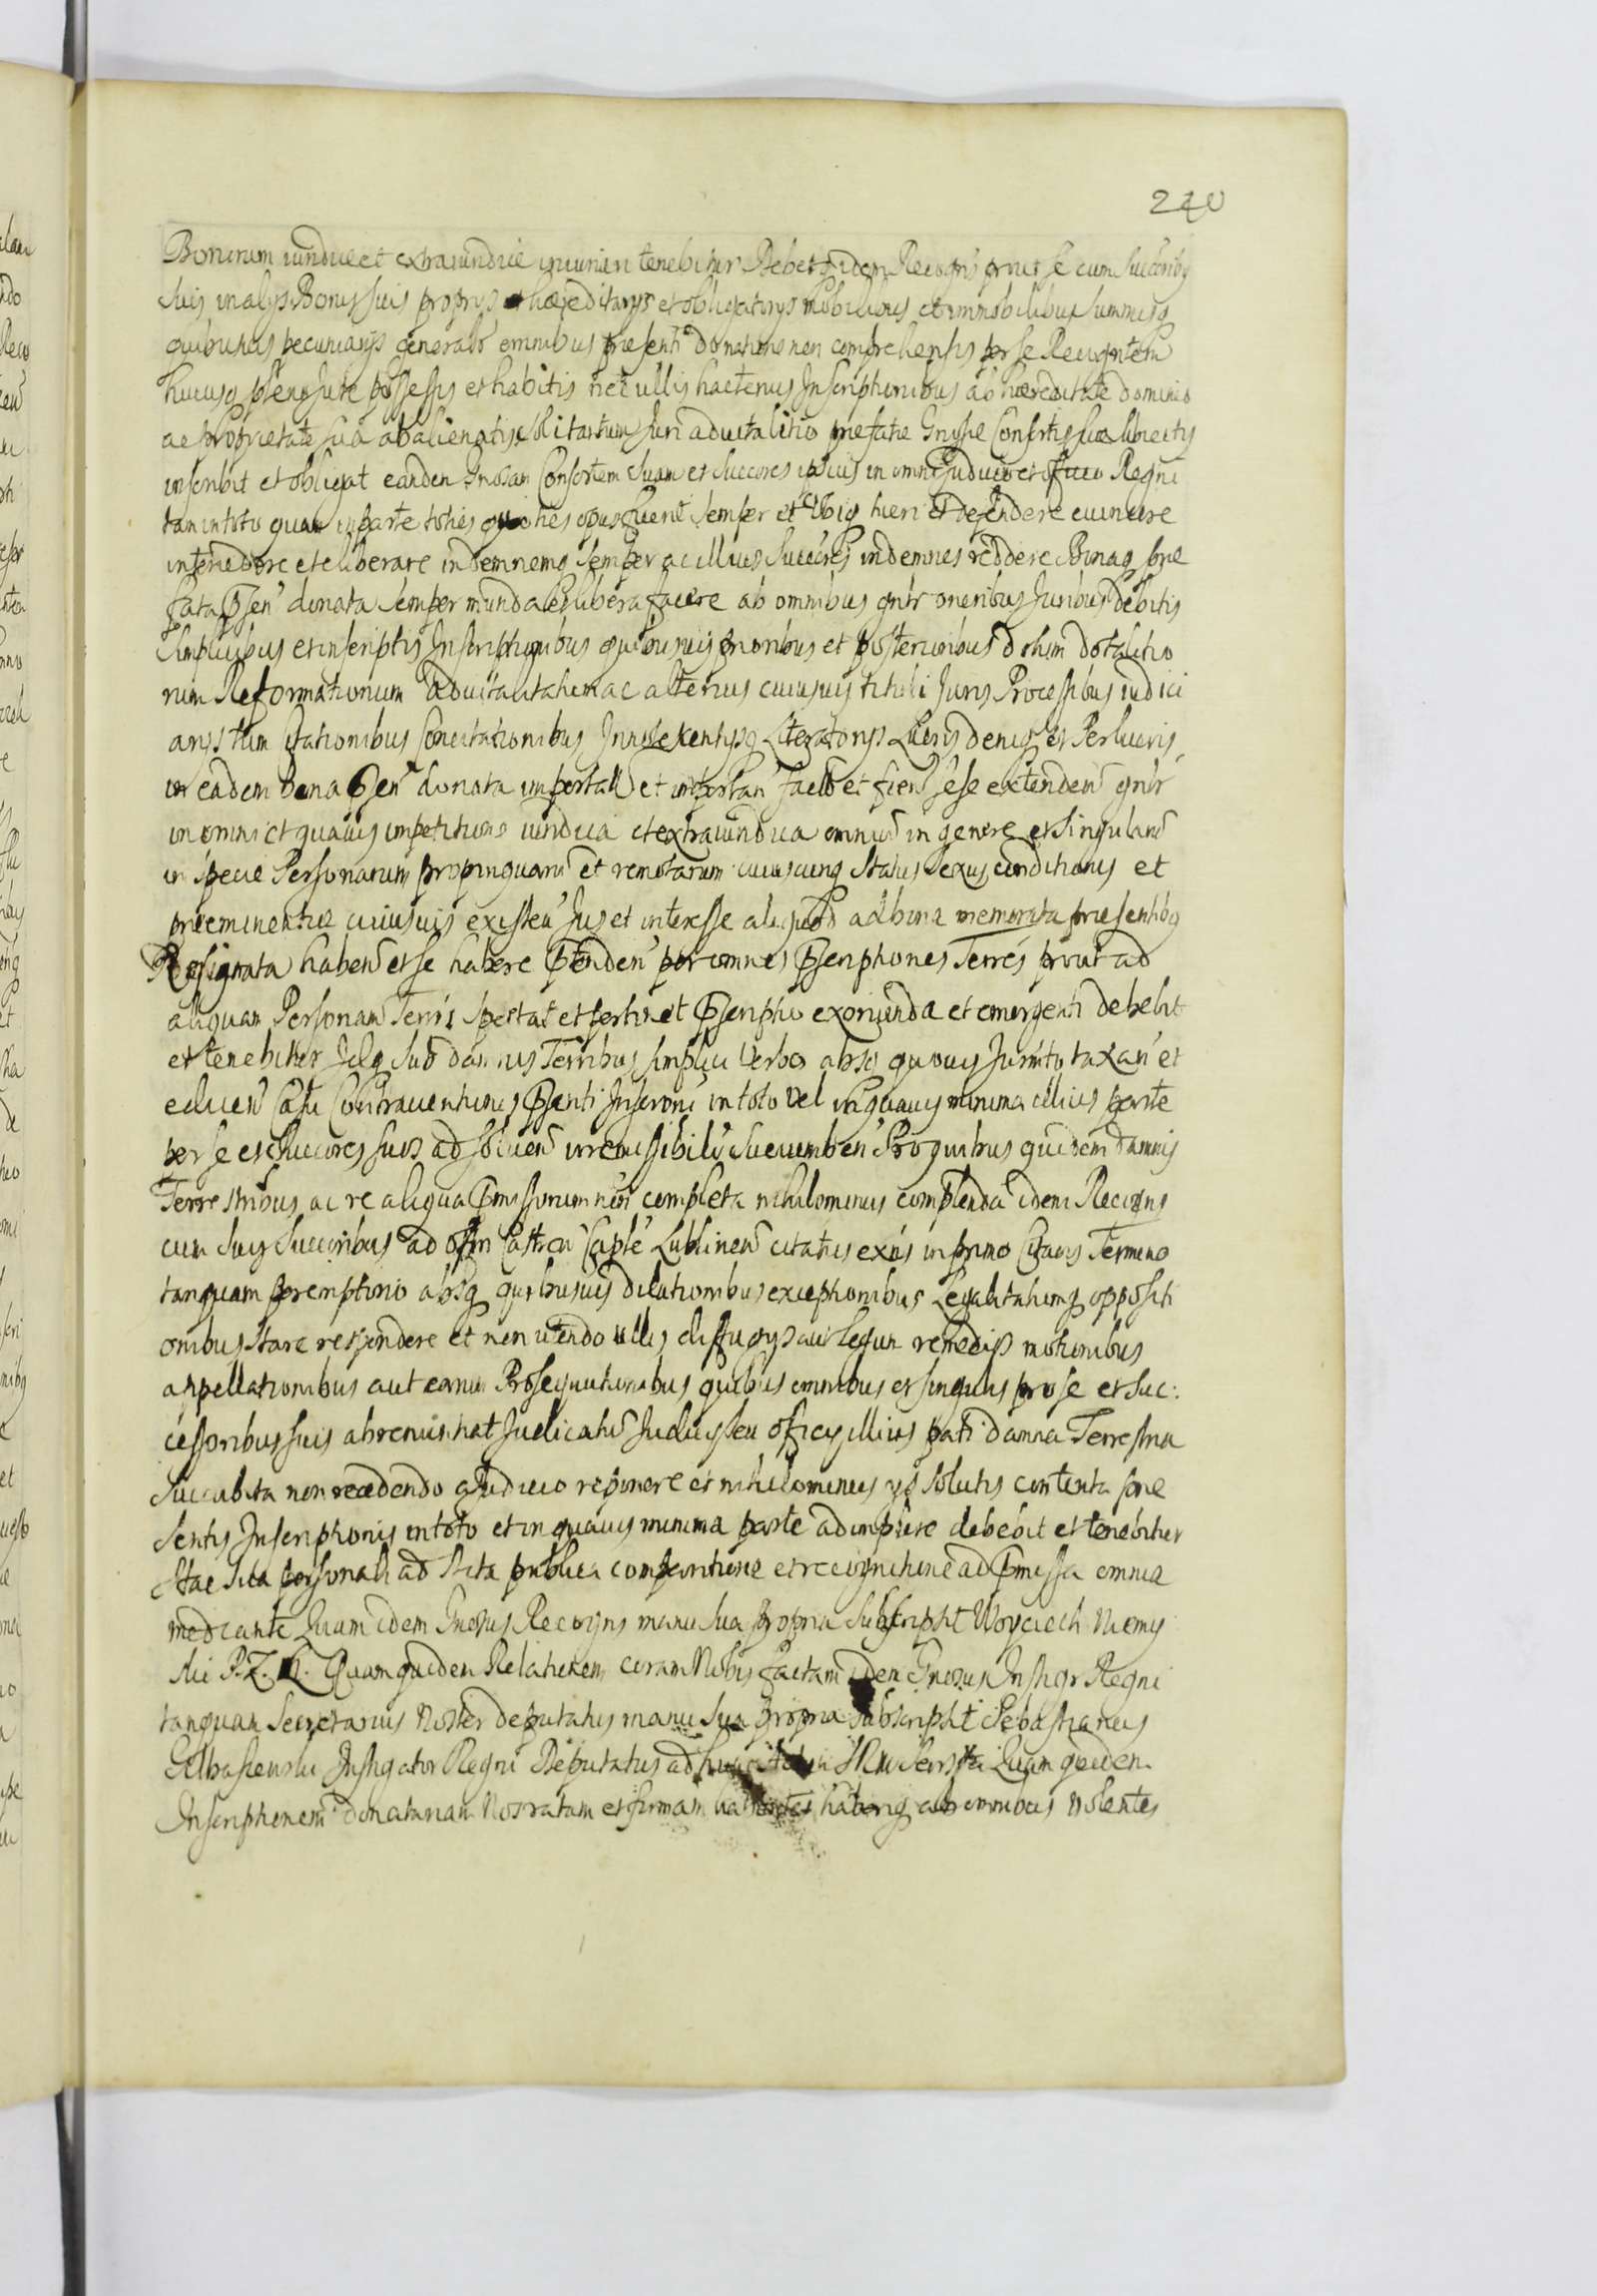 240
Bonorum iuridice et extraiuridice tenebitur Debet idem Recogn's prout se cum Succoribq
suis in alys Bonis suis proprys et haereditarys et obligatorys mobilibus et immobilibus summisq
quibusvis pecuniarijs generalr omnibus praesenti donatione non comprehensis per se Recognten
hucusq pleno Jure possessis et habitis nec ullis hactenus Inscriptionibus ab haereditate dominio
ac proprietate sua abalienatis tantum Juri advitalitio praefatae Gnsae Consortis suae
inscribit et obligat eandem Gnosam Consortem suam et Succores ipsius in omni Judicio et officio Regni
tam in toto quam in parte toties quoties opus fuerit semper et Ubiq tueri et defendere evincere
intercedere et liberare indemnemq semper ac illius Succores indemnes reddere Bonaq prae
fata psen donata semper munda et libera facere ab omnibus gnlr oneribus Juribus debitis
simplicibus et inscriptis Inscriptionibus quibusvis prioribus et posterioribus dotium dotalitio
rum Reformationum advitalitatum ac alterius cuiusvis tituli Juris Processibus iudici
arys tum citationibus Concitationibus Literatorys Lucris deniq et Perlucris
in eadem bona psen donata et important facto et fien sese extenden gnlr
in omni et quavis impetitione iuridica et extraiuridica omniu in genere et singularu
in specie Personarum propinquaru et remotarum cuiuscunq Status sexus conditionis et
praeeminentiae cuiusvis existen Jus et interesse aliquod ad bona memorata praesentibq
Resignata haben et se habere ptenden per omnes pscriptiones Terres prout ad
aliquam Personam Terris spectat et pertinet pscriptio exoriunda et emergenti debebit
et tenebitur Idq sub damnis Terribus simplici Verbo absq quovis Jurnto taxan et
Casu Contraventionis psenti Inscroni in toto vel in quavis minima illius parte
per se et Succores suos ad solven irremissibilr succumben Pro quibus quidem damnis
Terrestribus ac re aliqua pmissorum non completa nihilominus complenda idem Recogns
cum suis Succoribus ad offm Castren Caple Lublinen citatus exns in primo Citaons Termino
tanquam peremptorio absq quibusvis dilationibus exceptionibus Legalitatumq oppositi
onibus stare respondere et non utendo ullis diffugys aut legum remedijs motionibus
appellationibus aut earum Prosequutionibus quibus omnibus et singulis pro se et suc:
cessoribus suis abrenuntiat Judicatu Judicij seu officij illius pati damna Terrestria
succubita non recedendo a Judicio reponere et nihilominus ys solutis contenta prae
sentis Inscriptionis in toto et in quavis minima parte adimplere debebit et tenebitur
Hac sua personali ad Acta publica comparitione et recognitione ad pmissa omnia
mediante Quam idem Gnosus Recogns manu sua propria subscripsit Woyciech Niemy
ski P. Z. L. Quam quidem Relationem coram Nobis factam idem Gnosus Instigr Regni
tanquam Secretarius Noster deputatus manu sua propria subscripsit Sebastianus
Instigator Regni Deputatus ad Quam quidem
Inscriptionem donatoriam Nos ratam et firmam haberiq ab omnibus volentes